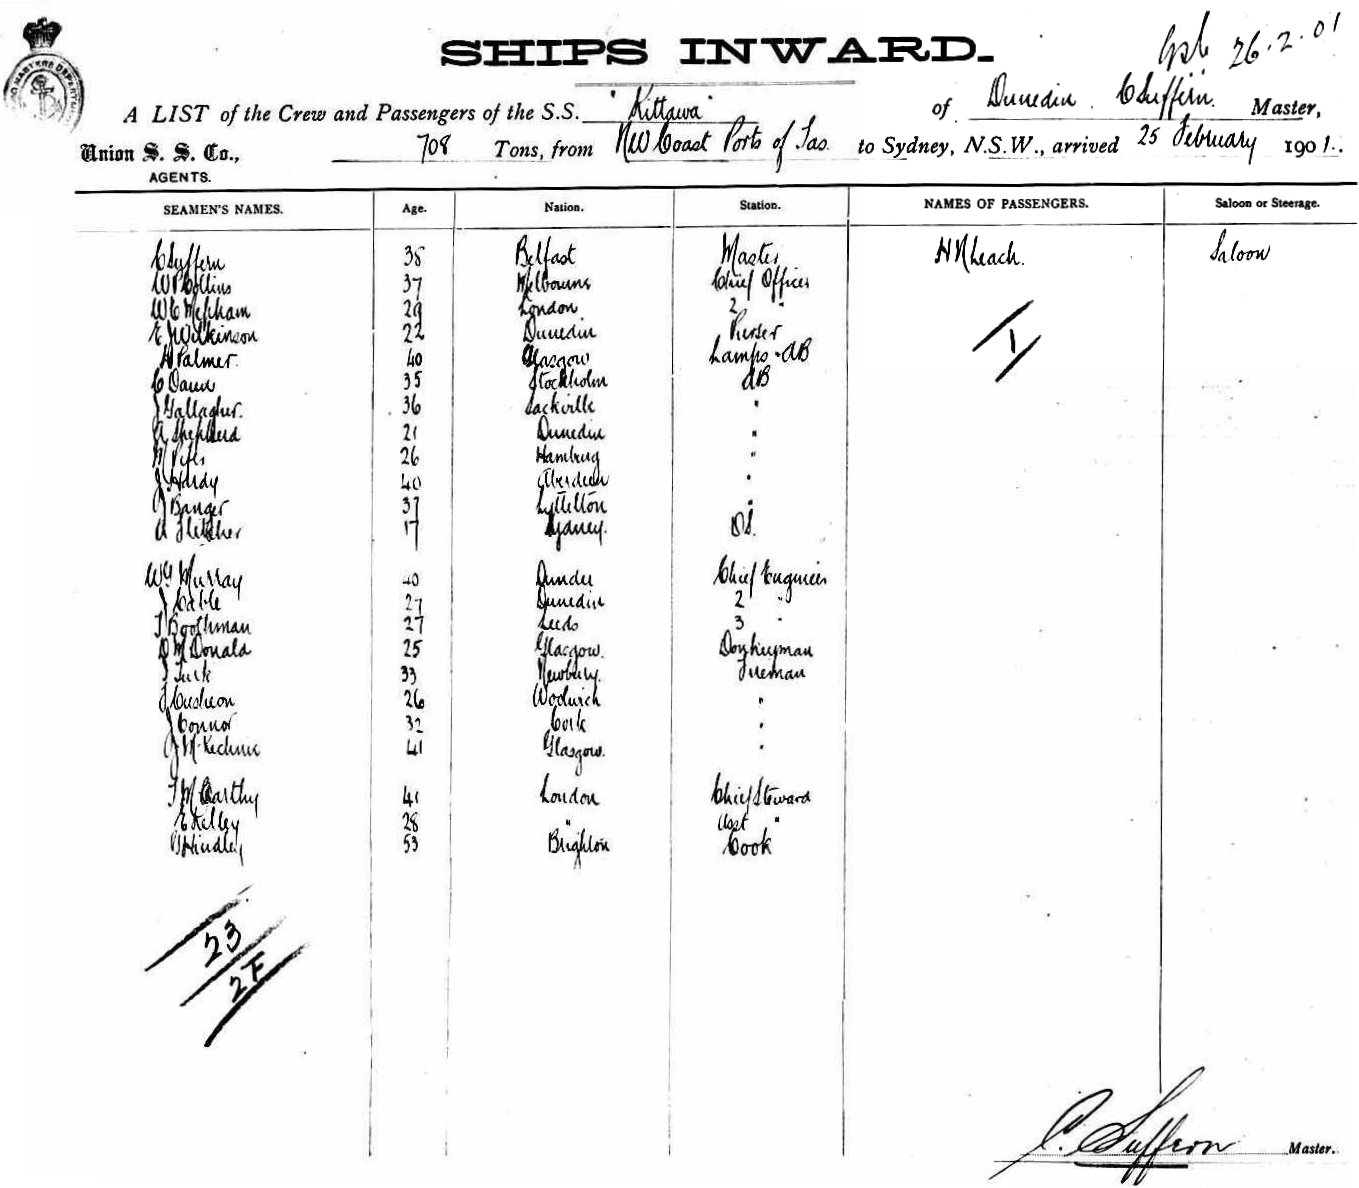 SHIPS INWARD.
26.2.01
A LIST of the Crew and Passengers of the S.S. "Kittawa" of Dunedin. C Suffern. Master,
Union S. S. Co., 708 Tons, from NW Coast Ports of Tas. to Sydney, N.S.W., arrived 25 February 1901.
AGENTS.
SEAMEN'S NAMES. Age. Nation. Station. NAMES OF PASSENGERS. Saloon or Steerage.
C Suffern 38 Belfast Master H N Leach. Saloon
W P Collins 37 Melbourne Chief Officer
W C Mepham 29 London 2 "
E J Wilkinson 22 Dunedin Purser
Palmer. 40 Glasgow Lamps & AB
C 35 Stockholm AB
J Gallagher. 36 Sackville "
A Shepherd 21 Dunedin "
26 Hamburg "
J Hardy 40 Aberdeen "
J Banger 37 Lyttelton "
A Fletcher 17 Sydney. OS.
1
Wm Murray 40 Dundee Chief Engineer
J Cable 27 Dunedin 2 "
T Boothman 27 Leeds 3 "
D McDonald 25 Glasgow. Donkeyman
J Turk 33 Newbury. Fireman
J Cusheon 26 Woolwich "
J Connor 32 Cork "
J McKechnie 41 Glasgow. "
T McCarthy 41 London Chief Steward
E Kelley 28 " Asst "
Hindley 53 Brighton Cook
23
2F
C. Suffern Master.